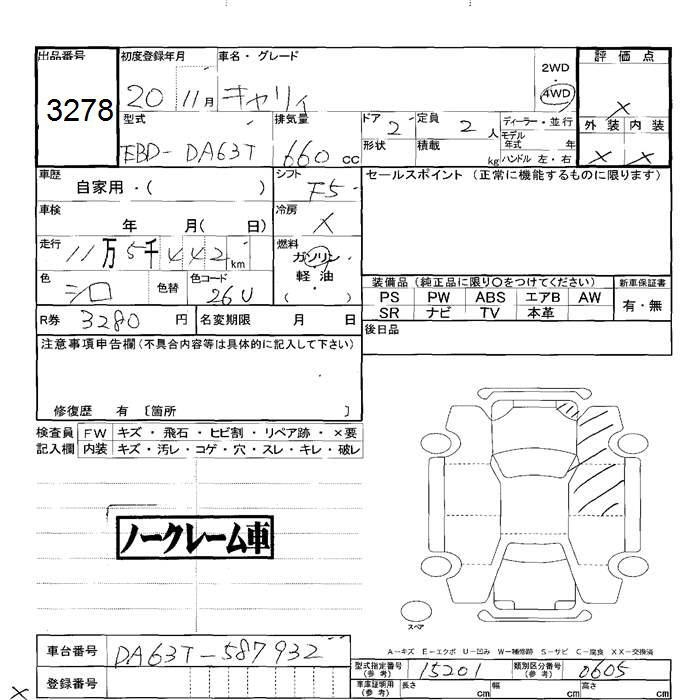 出品番号
3278
初度登録年月 20 11月
車名・グレード キャリィ
2WD
4WD
評価点 ×
外装 × 内装 ×
型式 EBD-DA63T
排気量 660 cc
ドア 2
形状
定員 2 人
積載 kg
ディーラー・並行
モデル年式 年
ハンドル 左・右
車歴 自家用・( )
シフト F5
車検 年 月( 日)
冷房 ×
走行 11万5千442km
燃料 ガソリン
軽油
( )
色 シロ 色替
色コード 26U
セールスポイント(正常に機能するものに限ります)
装備品(純正品に限り○をつけてください)
新車保証書
PS PW ABS エアB AW
SR ナビ TV 本革
有・無
R券 3280 円
名変期限 月 日
後日品
注意事項申告欄(不具合内容等は具体的に記入して下さい)
修復歴 有 〔箇所 〕
検査員 FW キズ・飛石・ヒビ割・リペア跡・×要
記入欄 内装 キズ・汚レ・コゲ・穴・スレ・キレ・破レ
ノークレーム車
スペア
A-キズ E-エクボ U-凹み W-補修跡 S-サビ C-腐食 XX-交換済
車台番号 DA63T-587932
登録番号
型式指定番号(参考) 15201
類別区分番号(参考) 0605
車庫証明用(参考) 長さ cm 幅 cm 高さ cm
×